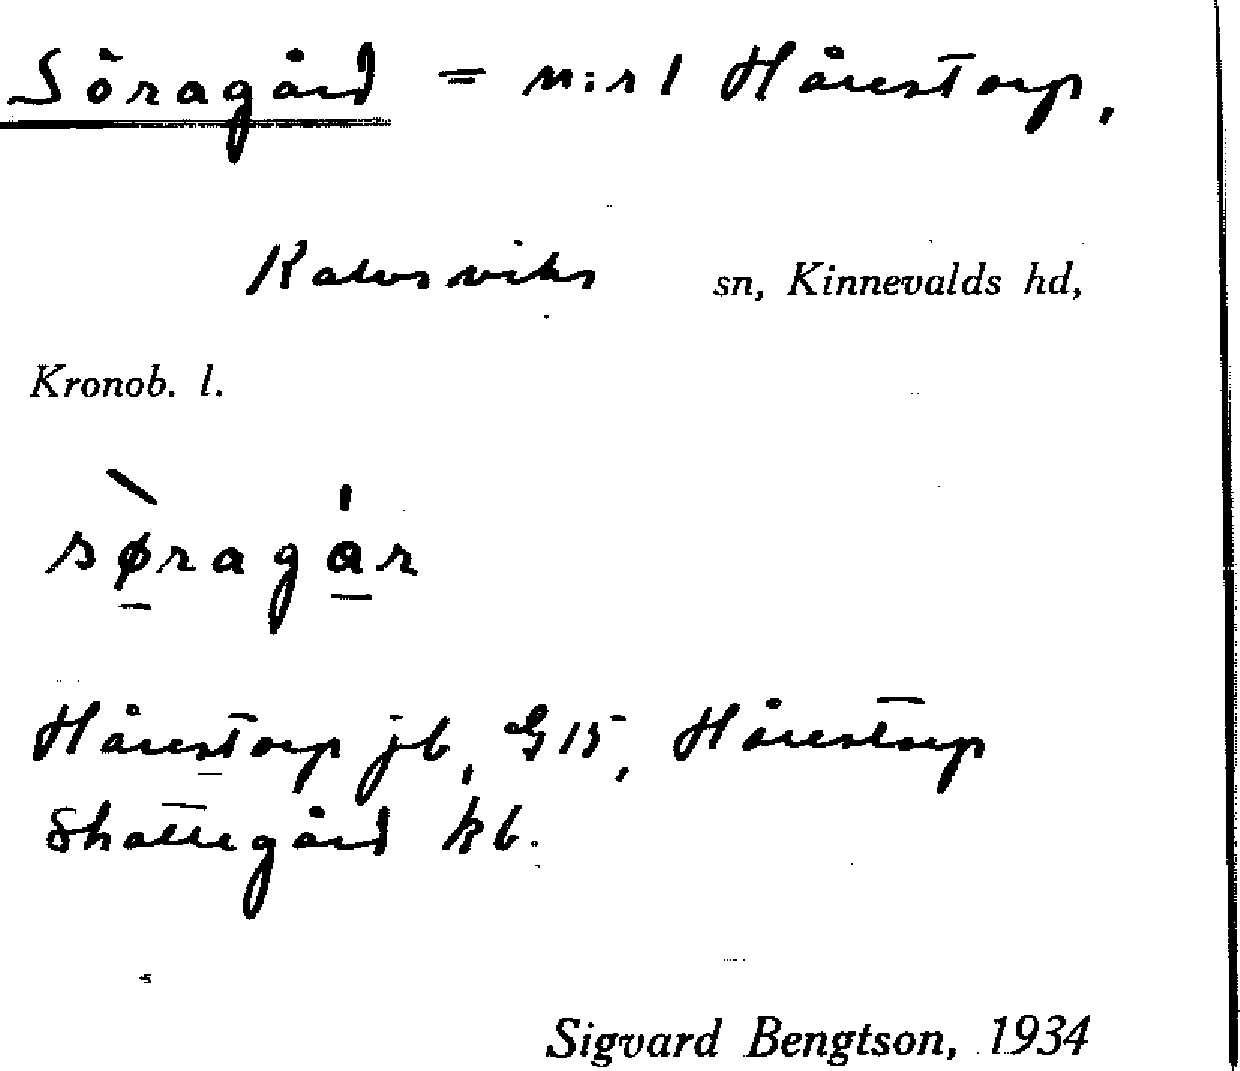 Söragård = n:r 1 Hårestorp,
Kalvsviks sn, Kinnevalds hd,
Kronob. l.
sø̱̀ragá̱r
Hårestorp jb, G 15, Hårestorp
Skattegård kb.
Sigvard Bengtson, 1934